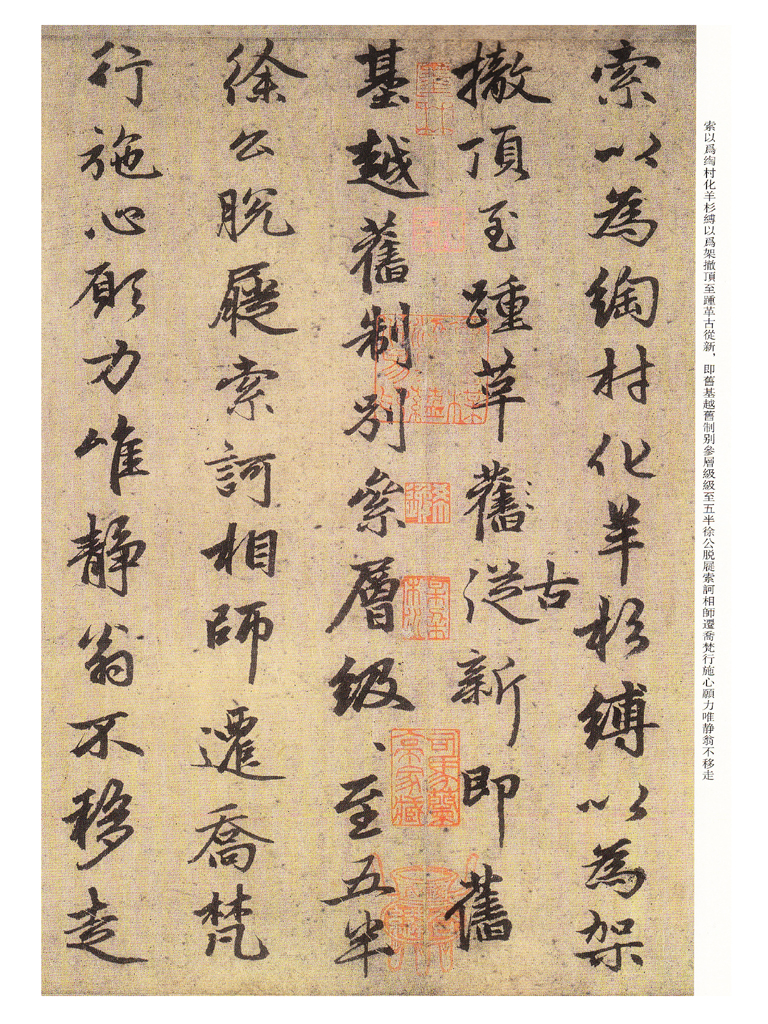 索以為綯村化羊杉縛以為架
撤頂至踵草舊從古新即舊
基越舊制別叅層級、至五半
徐公脫屣索訶相師遷喬梵
行施心願力唯靜翁不移走
索以爲綯村化羊杉縛以爲架撤頂至踵革古從新，即舊基越舊制別參層級級至五半徐公脱屣索訶相師遷喬梵行施心願力唯静翁不移走